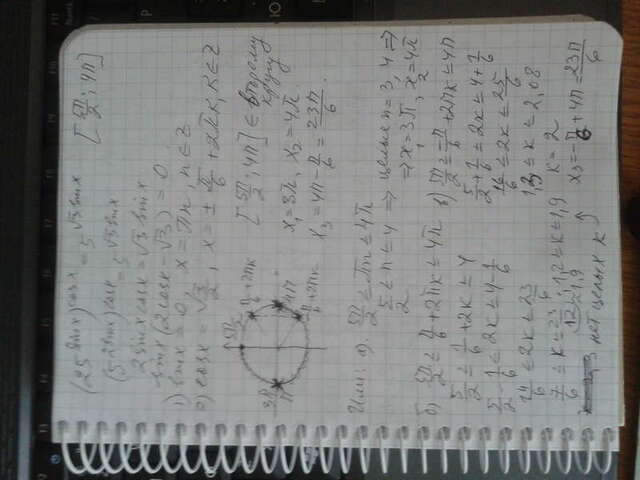 (25^sinx)^cosx = 5^√3sinx [5π/2; 4π]
(5^2sinx)^cosx = 5^√3sinx
2sinxcosx = √3sinx
sinx(2cosx - √3) = 0
1) sinx = 0, x = πn, n ∈ Z
2) cosx = √3/2, x = ± π/6 + 2πk, k ∈ Z
5π/2
π/6 + 2πk
3π
π
4π
-π/6 + 2πk
[5π/2; 4π] ∈ второму кругу
x₁ = 3π, x₂ = 4π
x₃ = 4π - π/6 = 23π/6.
Или: а). 5π/2 ≤ πn ≤ 4π
5/2 ≤ n ≤ 4 ⇒ целых n = 3, 4 ⇒
⇒ x₁ = 3π, x₂ = 4π
б) 5π/2 ≤ π/6 + 2πk ≤ 4π
5/2 ≤ 1/6 + 2k ≤ 4
5/2 - 1/6 ≤ 2k ≤ 4 - 1/6
14/6 ≤ 2k ≤ 23/6
7/6 ≤ k ≤ 23/12; 1,2 ≤ k ≤ 1,9
нет целых k
в) 5π/2 ≤ -π/6 + 2πk ≤ 4π
5/2 + 1/6 ≤ 2k ≤ 4 + 1/6
16/6 ≤ 2k ≤ 25/6
1,3 ≤ k ≤ 2,08
k = 2
x₃ = -π/6 + 4π = 23π/6